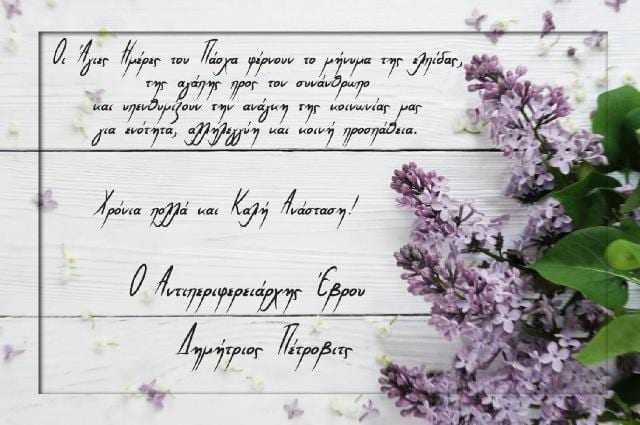 Οι Άγιες Ημέρες του Πάσχα φέρνουν το μήνυμα της ελπίδας,
της αγάπης προς τον συνάνθρωπο
και υπενθυμίζουν την ανάγκη της κοινωνίας μας
για ενότητα, αλληλεγγύη και κοινή προσπάθεια.
Χρόνια πολλά και Καλή Ανάσταση!
Ο Αντιπεριφερειάρχης Έβρου
Δημήτριος Πέτροβιτς